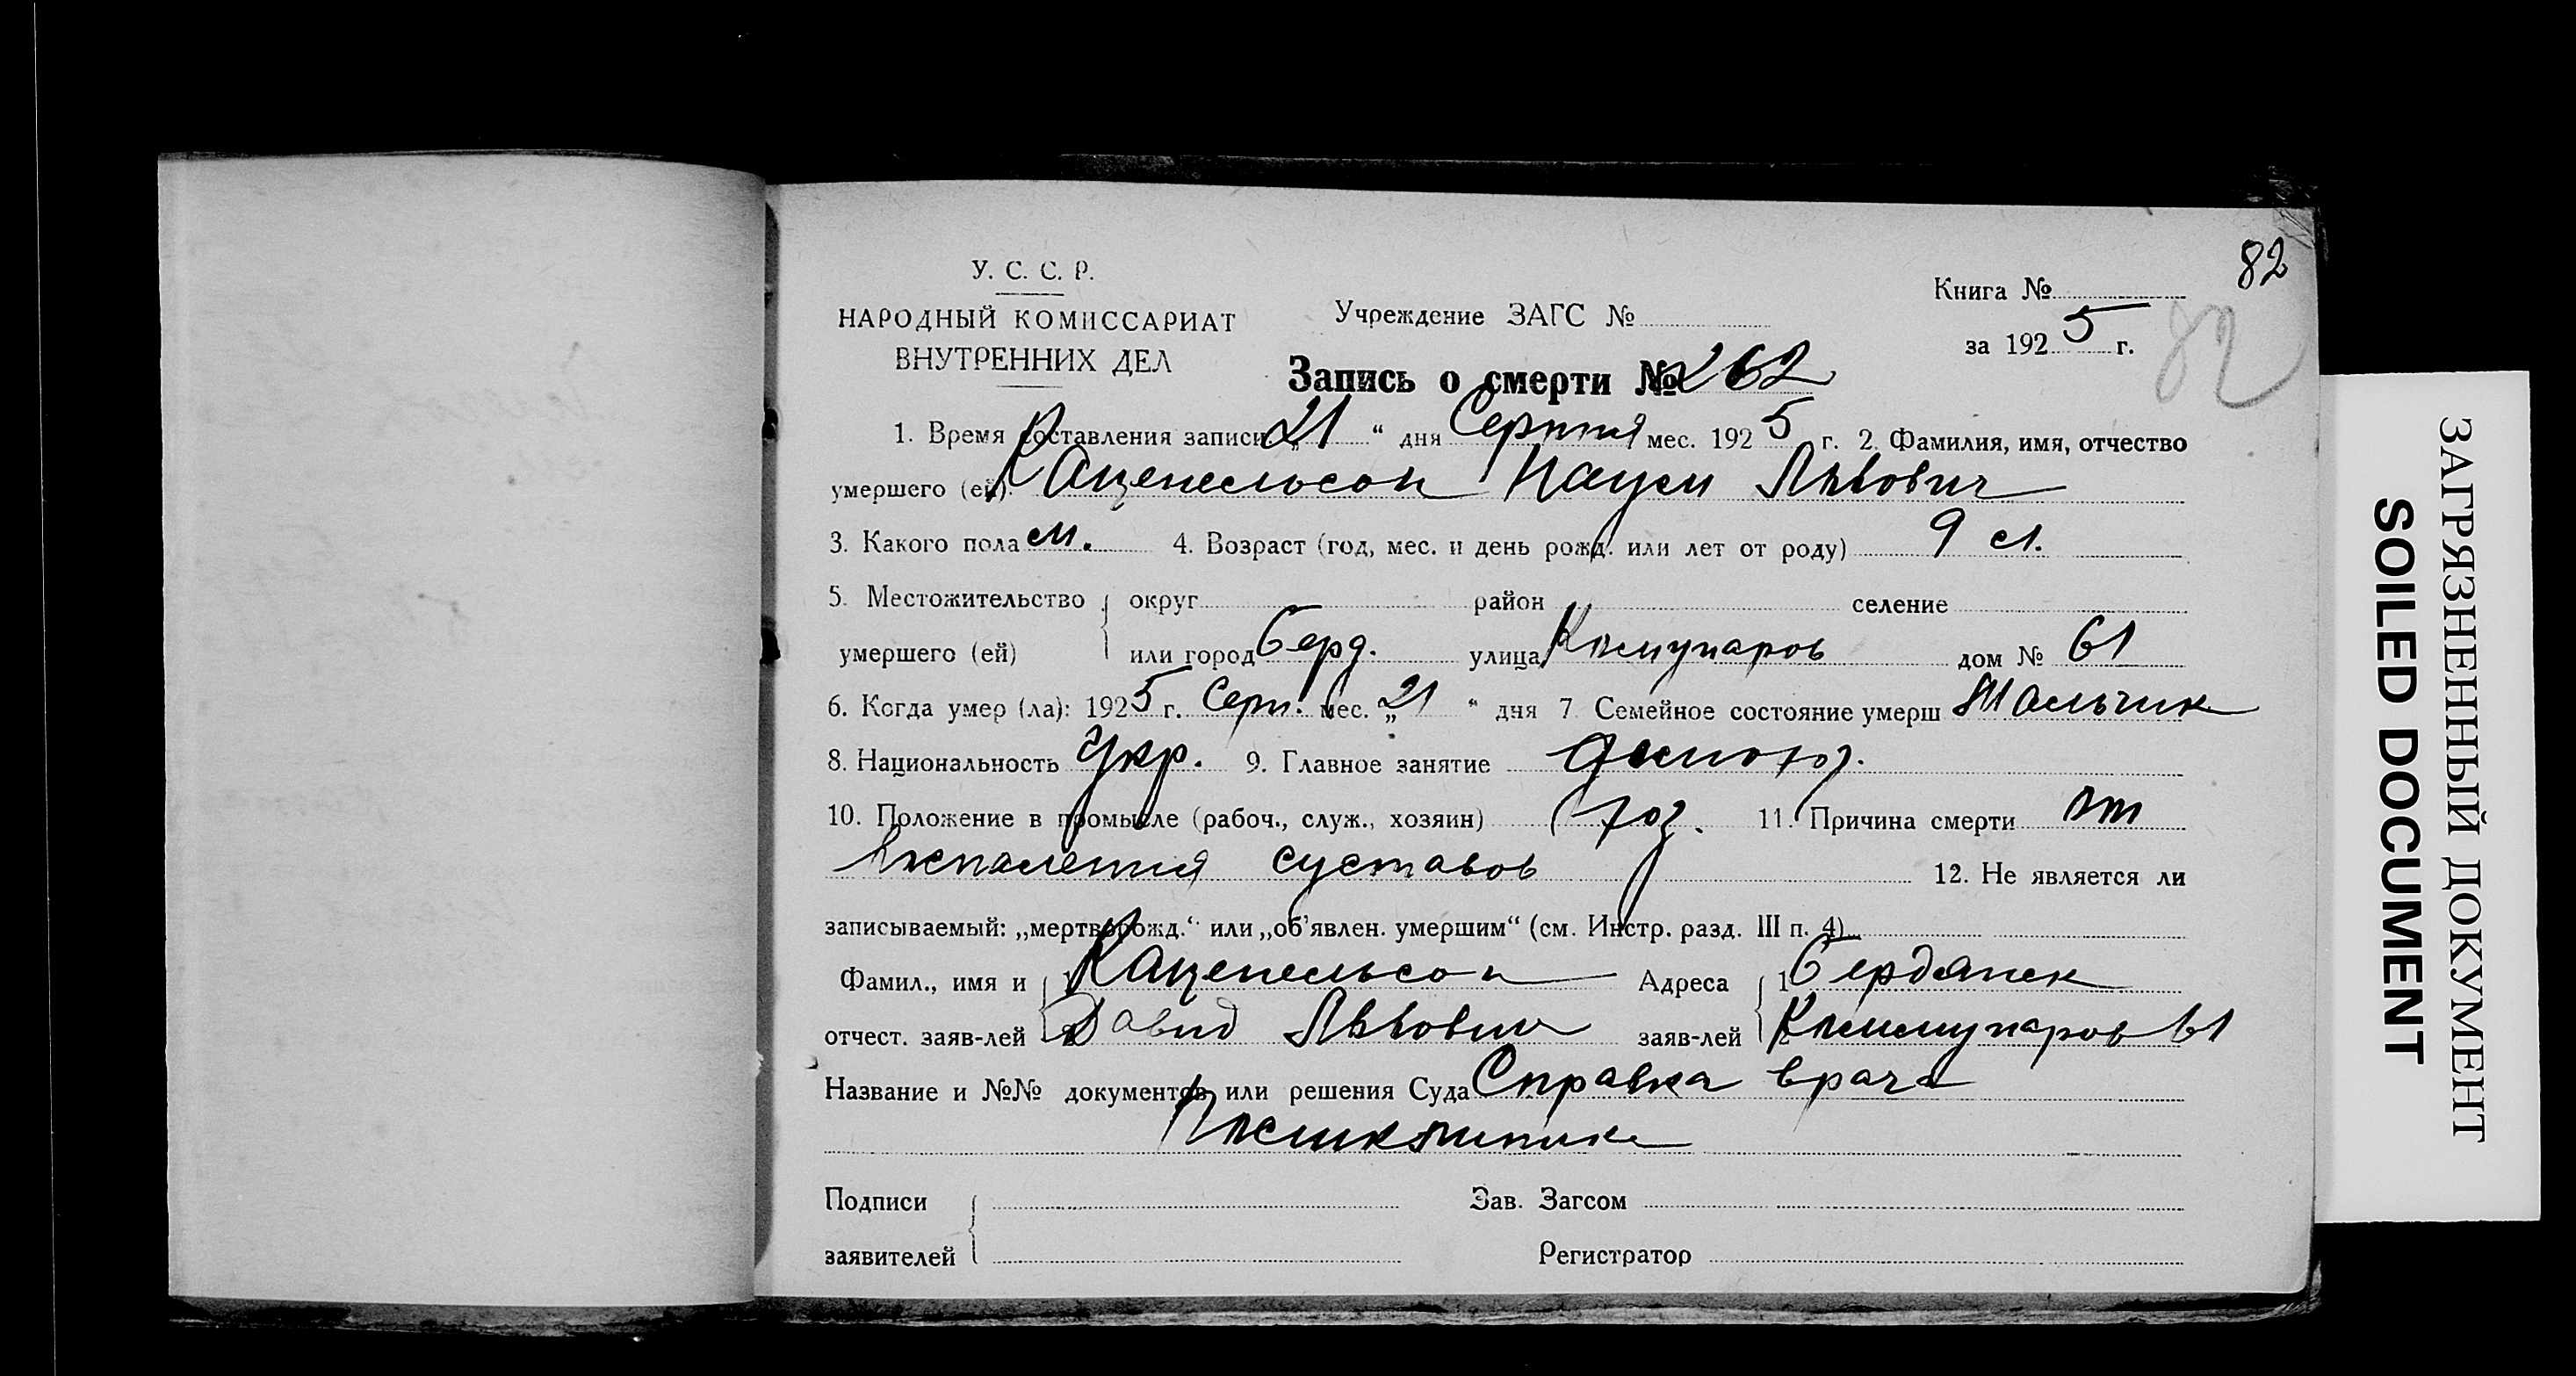 82
У. С. С. Р.
НАРОДНЫЙ КОМИССАРИАТ
ВНУТРЕННИХ ДЕЛ
Учреждение ЗАГС №
Книга №
за 1925 г.
82
Запись о смерти № 262
1. Время составления записи: „21“ дня Серпня мес. 1925 г. 2. Фамилия, имя, отчество
умершего (ей). Каценельсон Наум Львович
3. Какого пола м. 4. Возраст (год, мес. и день рожд. или лет от роду) 9 л.
5. Местожительство округ район селение
умершего (ей) или город Берд. улица Комунаров дом № 61
6. Когда умер (ла): 1925 г. Серп. мес. „21“ дня 7 Семейное состояние умерш Мальчик
8. Национальность Укр. 9. Главное занятие
10. Положение в промысле (рабоч., служ., хозяин) 11. Причина смерти от
воспаления суставов 12. Не является ли
записываемый: „мертворожд.“ или „об'явлен. умершим“ (см. Инстр. разд. III п. 4)
Фамил., имя и 1 Каценельсон Адреса 1 Бердянск
отчест. заяв-лей 2 Давид Львович заяв-лей Коммунаров 61
Название и №№ документов или решения Суда Справка врача
Подписи Зав. Загсом
заявителей Регистратор
ЗАГРЯЗНЕННЫЙ ДОКУМЕНТ
SOILED DOCUMENT